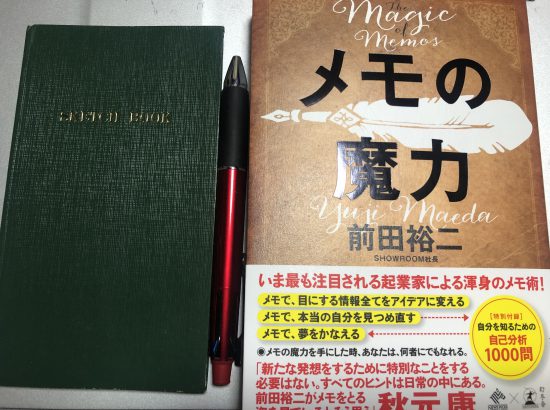 SKETCH BOOK
The
Magic
of
Memos
メモの
魔力
Yuji Maeda
前田裕二
SHOWROOM社長
いま最も注目される起業家による渾身のメモ術!
メモで、目にする情報全てをアイデアに変える
メモで、本当の自分を見つめ直す
メモで、夢をかなえる
【特別付録】
自分を知るための
自己分析
1000問
●メモの魔力を手にした時、あなたは、何者にでもなれる。
「新たな発想をするために特別なことをする
必要はない。すべてのヒントは日常の中にある。
前田裕二がメモをとる
秋元康